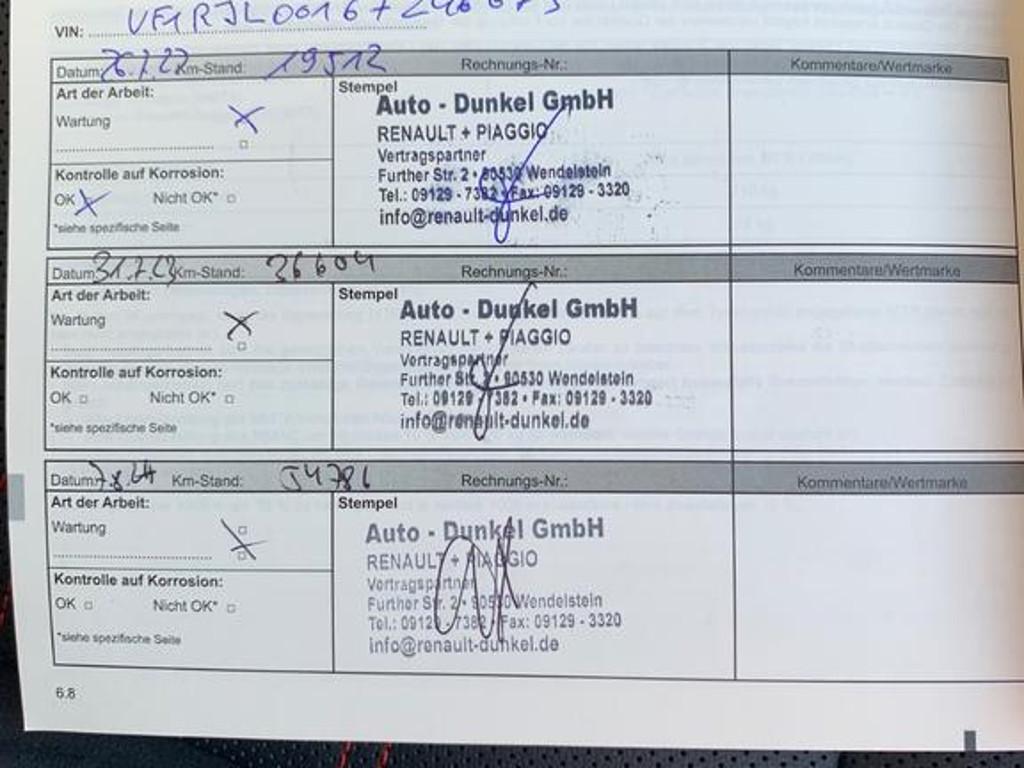 VIN:
Datum: 26.7.22 Km-Stand: 19512 Rechnungs-Nr.: Kommentare/Wertmarke
Art der Arbeit:
Wartung
Kontrolle auf Korrosion:
OK Nicht OK*
*siehe spezifische Seite
Stempel
Auto - Dunkel GmbH
RENAULT + PIAGGIO
Vertragspartner
Further Str. 2 • 90530 Wendelstein
Tel.: 09129 - 7382 • Fax: 09129 - 3320
info@renault-dunkel.de
Datum: 31.7.23 Km-Stand: 36604 Rechnungs-Nr.: Kommentare/Wertmarke
Art der Arbeit:
Wartung
Kontrolle auf Korrosion:
OK Nicht OK*
*siehe spezifische Seite
Stempel
Auto - Dunkel GmbH
RENAULT + PIAGGIO
Vertragspartner
Further Str. 2 • 90530 Wendelstein
Tel.: 09129 - 7382 • Fax: 09129 - 3320
info@renault-dunkel.de
Datum: 7.8.24 Km-Stand: 54786 Rechnungs-Nr.: Kommentare/Wertmarke
Art der Arbeit:
Wartung
Kontrolle auf Korrosion:
OK Nicht OK*
*siehe spezifische Seite
Stempel
Auto - Dunkel GmbH
RENAULT + PIAGGIO
Vertragspartner
Further Str. 2 • 90530 Wendelstein
Tel.: 09129 - 7382 • Fax: 09129 - 3320
info@renault-dunkel.de
6.8